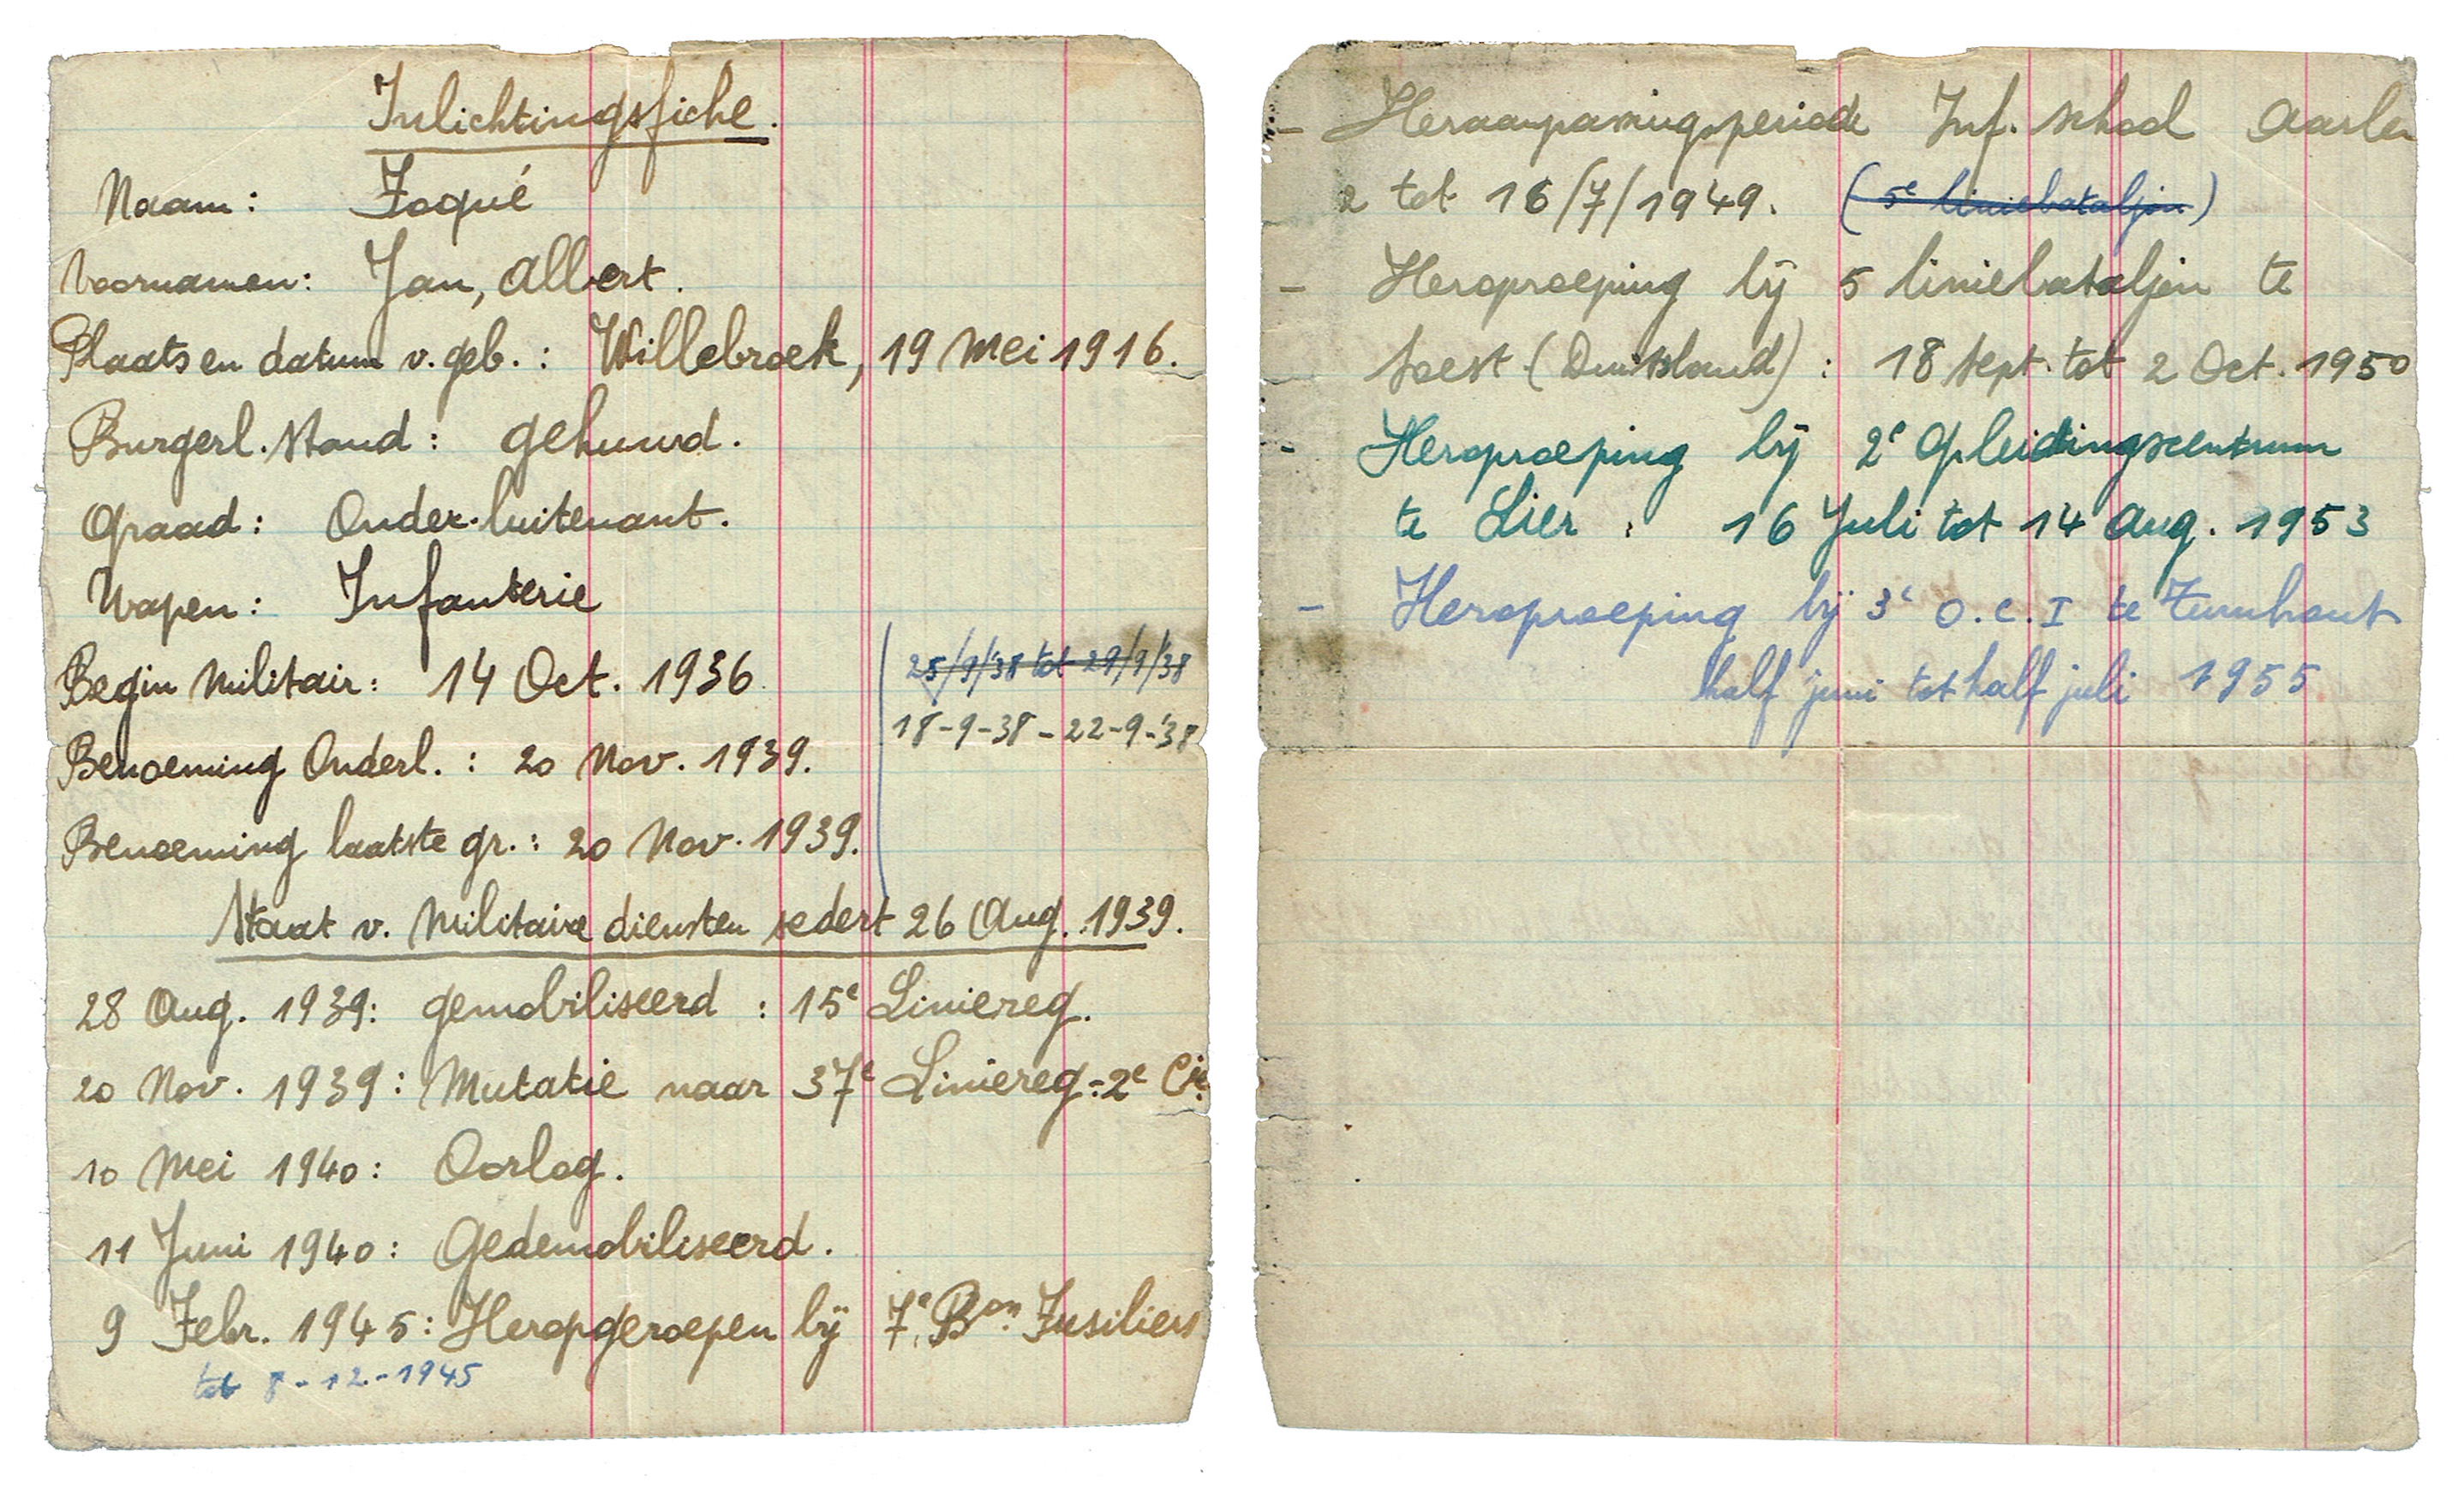 Inlichtingsfiche.
Naam: Foqué
Voornamen: Jan, Albert.
Plaats en datum v. geb.: Willebroek, 19 Mei 1916.
Burgerl. stand: gehuwd.
Graad: Onder-luitenant.
Wapen: Infanterie
Begin militair: 14 Oct. 1936
25/9/'38 tot 29/9/'38
18-9-38 - 22-9-'38
Benoeming Onderl.: 20 Nov. 1939.
Benoeming laatste gr.: 20 Nov. 1939.
Staat v. Militaire diensten sedert 26 Aug. 1939.
28 Aug. 1939: gemobiliseerd: 15e Liniereg.
20 Nov. 1939: Mutatie naar 37e Liniereg-2e Cie.
10 Mei 1940: Oorlog.
11 Juni 1940: Gedemobiliseerd.
9 Febr. 1945: Heropgeroepen bij 7e Bon. Fusiliers
tot 8-12-1945
- Heraanpassingsperiode Inf. school Aarlen
2 tot 16/7/1949. (5e liniebataljon)
- Heroproeping bij 5 liniebataljon te
Soest (Duitsland): 18 Sept. tot 2 Oct. 1950
- Heroproeping bij 2e Opleidingscentrum
te Lier: 16 Juli tot 14 Aug. 1953
- Heroproeping bij 3e O.C.I te Turnhout
half juni tot half juli 1955